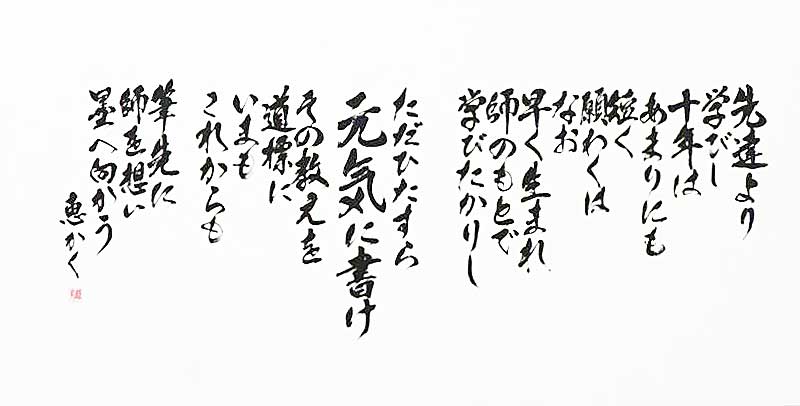 先達より
学びし
十年は
あまりにも
短く
願わくは
なお
早く生まれ
師のもとで
学びたかりし
ただひたすら
元気に書け
その教えを
道標に
いまも
これからも
筆先に
師を想い
墨へ向かう
恵かく